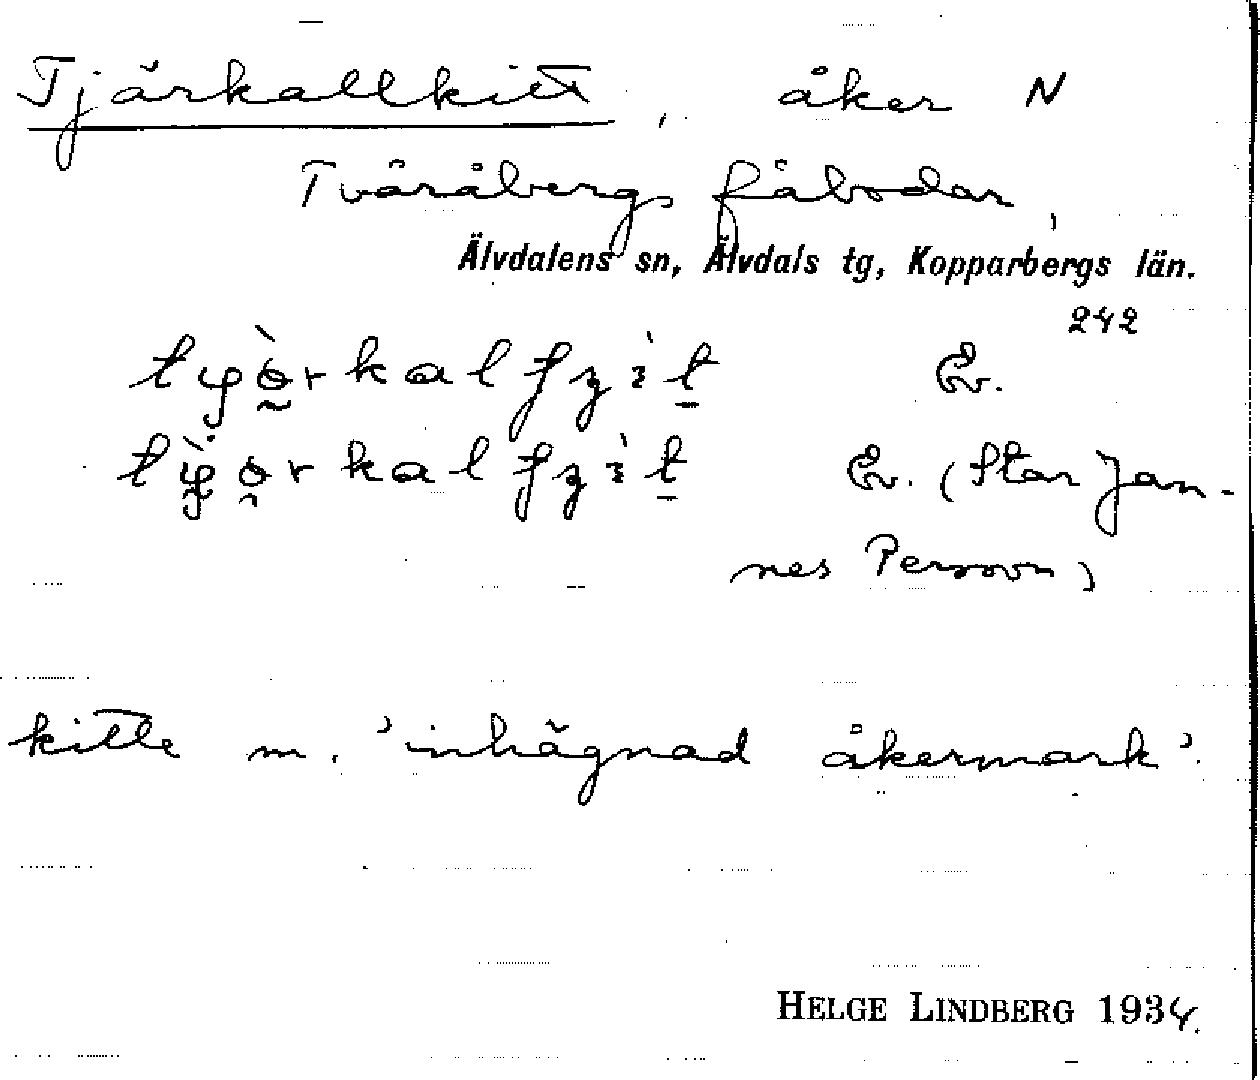 Tjärkallkitt, åker N
Tväråbergs fäbodar,
Älvdalens sn, Älvdals tg, Kopparbergs län.
242
Ev.
Ev. (Stor Jan-
nes Persson)
kitte m. 'inhägnad åkermark'.
HELGE LINDBERG 1934.